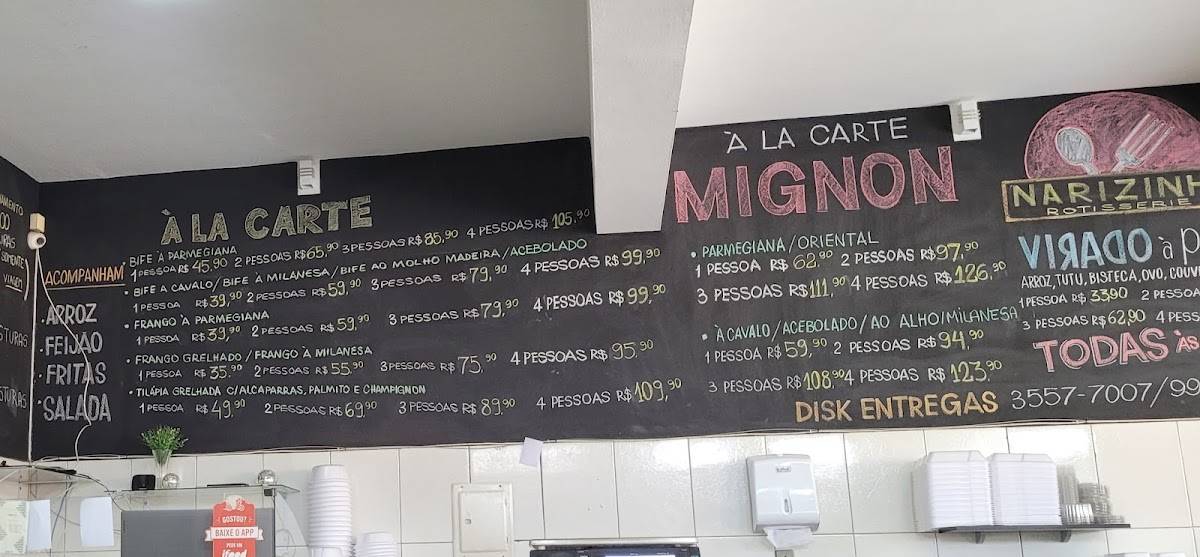 ACOMPANHAM
• ARROZ
• FEIJÃO
• FRITAS
• SALADA
À LA CARTE
• BIFE À PARMEGIANA
1 PESSOA R$ 45,90 2 PESSOAS R$ 65,90 3 PESSOAS R$ 85,90 4 PESSOAS R$ 105,90
• BIFE A CAVALO/BIFE À MILANESA/BIFE AO MOLHO MADEIRA/ACEBOLADO
1 PESSOA R$ 39,90 2 PESSOAS R$ 59,90 3 PESSOAS R$ 79,90 4 PESSOAS R$ 99,90
• FRANGO À PARMEGIANA
1 PESSOA R$ 39,90 2 PESSOAS R$ 59,90 3 PESSOAS R$ 79,90 4 PESSOAS R$ 99,90
• FRANGO GRELHADO/FRANGO À MILANESA
1 PESSOA R$ 35,90 2 PESSOAS R$ 55,90 3 PESSOAS R$ 75,90 4 PESSOAS R$ 95,90
• TILÁPIA GRELHADA C/ALCAPARRAS, PALMITO E CHAMPIGNON
1 PESSOA R$ 49,90 2 PESSOAS R$ 69,90 3 PESSOAS R$ 89,90 4 PESSOAS R$ 109,90
À LA CARTE
MIGNON
• PARMEGIANA/ORIENTAL
1 PESSOA R$ 62,90 2 PESSOAS R$ 97,90
3 PESSOAS R$ 111,90 4 PESSOAS R$ 126,90
• À CAVALO/ACEBOLADO/AO ALHO/MILANESA
1 PESSOA R$ 59,90 2 PESSOAS R$ 94,90
3 PESSOAS R$ 108,90 4 PESSOAS R$ 123,90
DISK ENTREGAS 3557-7007/99
NARIZINH
ROTISSERIE
VIRADO à P
ARROZ, TUTU, BISTECA, OVO, COUV
1 PESSOA R$ 33,90 2 PESSOA
3 PESSOAS R$ 62,90 4 PESS
TODAS ÀS
GOSTOU?
BAIXE O APP
ifood